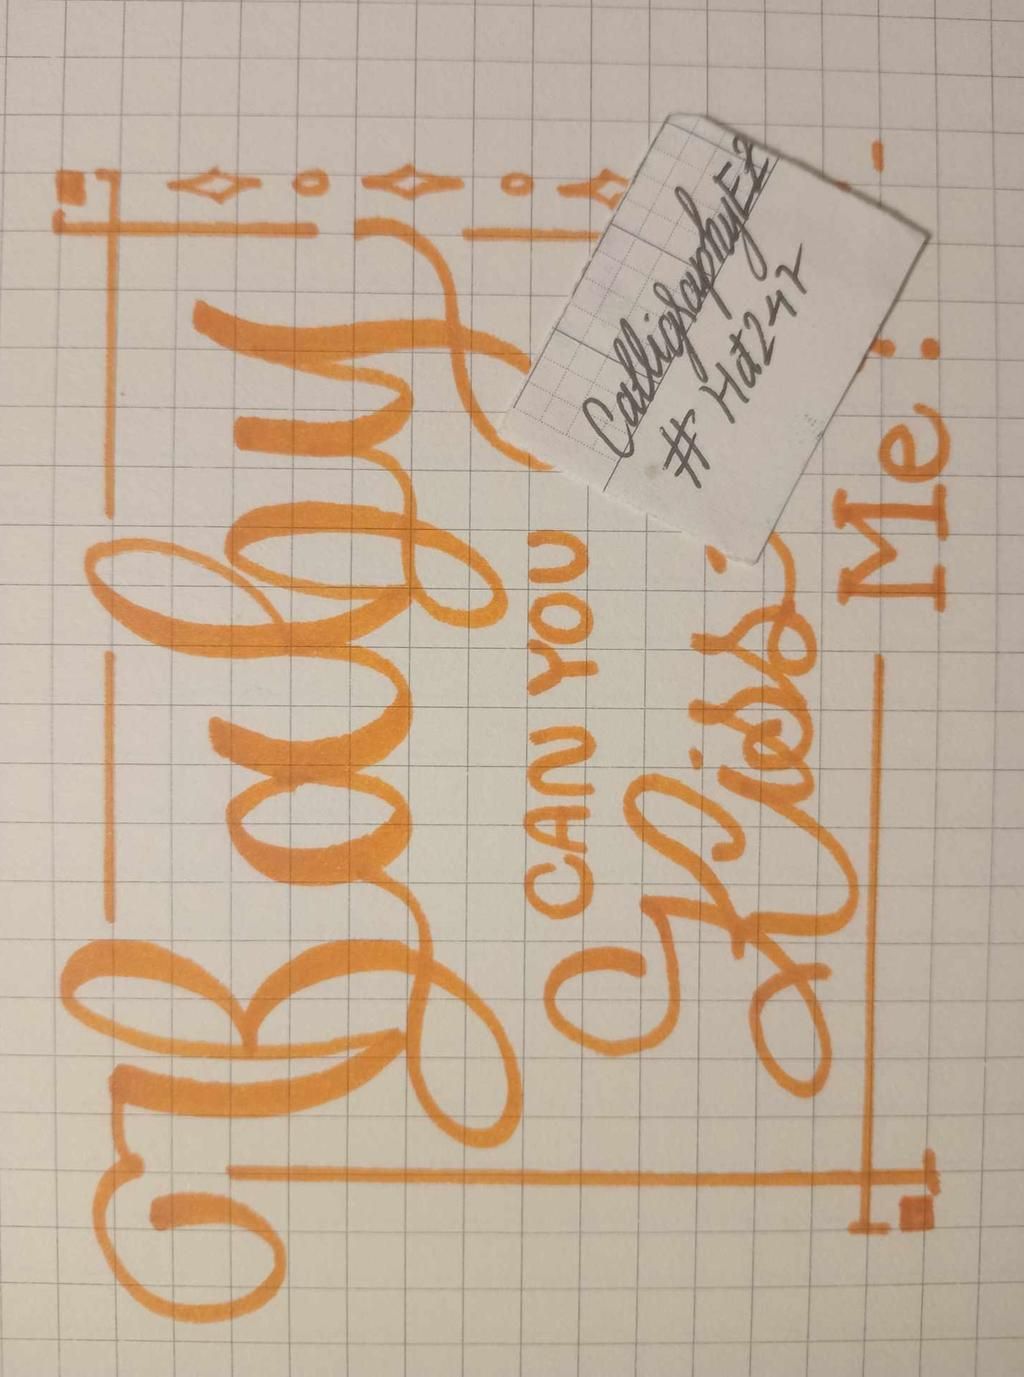 Baby
CAN YOU
Kiss
Me :
CalligraphyEZ
# Hat247